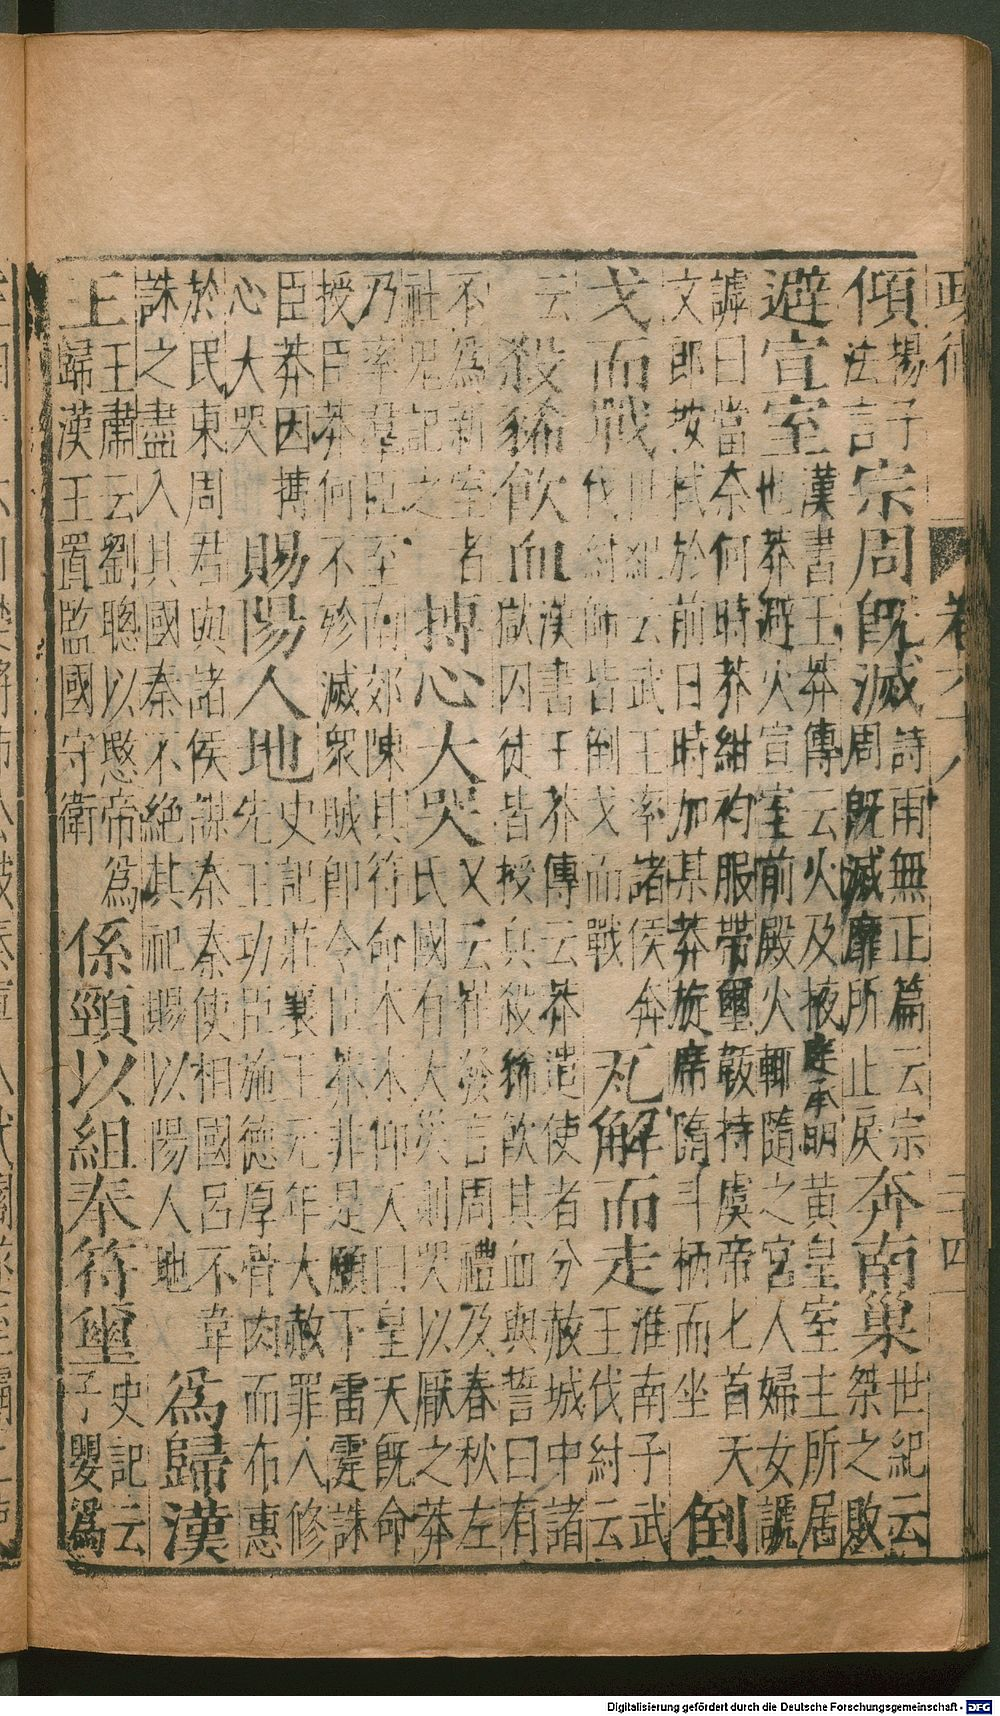 政術 卷之十八 二十四
傾 楊子
法言 宗周既滅 詩雨無正篇云宗
周既滅靡所止戾 奔南巢 世紀云
桀之敗
避宣室 漢書王莽傳云火及掖庭承明黃皇室主所居
也莽避火宣室前殿火輒隨之宮人婦女諕
謼曰當奈何時莽紺袀服帶璽韍持虞帝匕首天
文郎按栻於前日時加某莽旋席隨斗柄而坐 倒
戈而戰 世紀云武王率諸侯奔
伐紂師皆倒戈而戰 瓦解而走 淮南子武
王伐紂云
云 殺豨飲血 漢書王莽傳云莽遣使者分赦城中諸
獄囚徒皆授兵殺豨飲其血與誓曰有
不為新室者
社鬼記之 搏心大哭 又云崔發言周禮及春秋左
氏國有大災則哭以厭之莽
乃率羣臣至南郊陳其符命本末仰天曰皇天既命
授臣莽何不殄滅眾賊即令臣莽非是願下雷霆誅
臣莽因搏
心大哭 賜陽人地 史記莊襄王元年大赦罪人修
先王功臣施德厚骨肉而布惠
於民東周君與諸侯謀秦秦使相國呂不韋
誅之盡入其國秦不絕其祀賜以陽人地 為歸漢
王 王肅云劉聰以愍帝為
歸漢王置監國守衛 係頸以組奉符璽 史記云
子嬰為
Digitalisierung gefördert durch die Deutsche Forschungsgemeinschaft - DFG